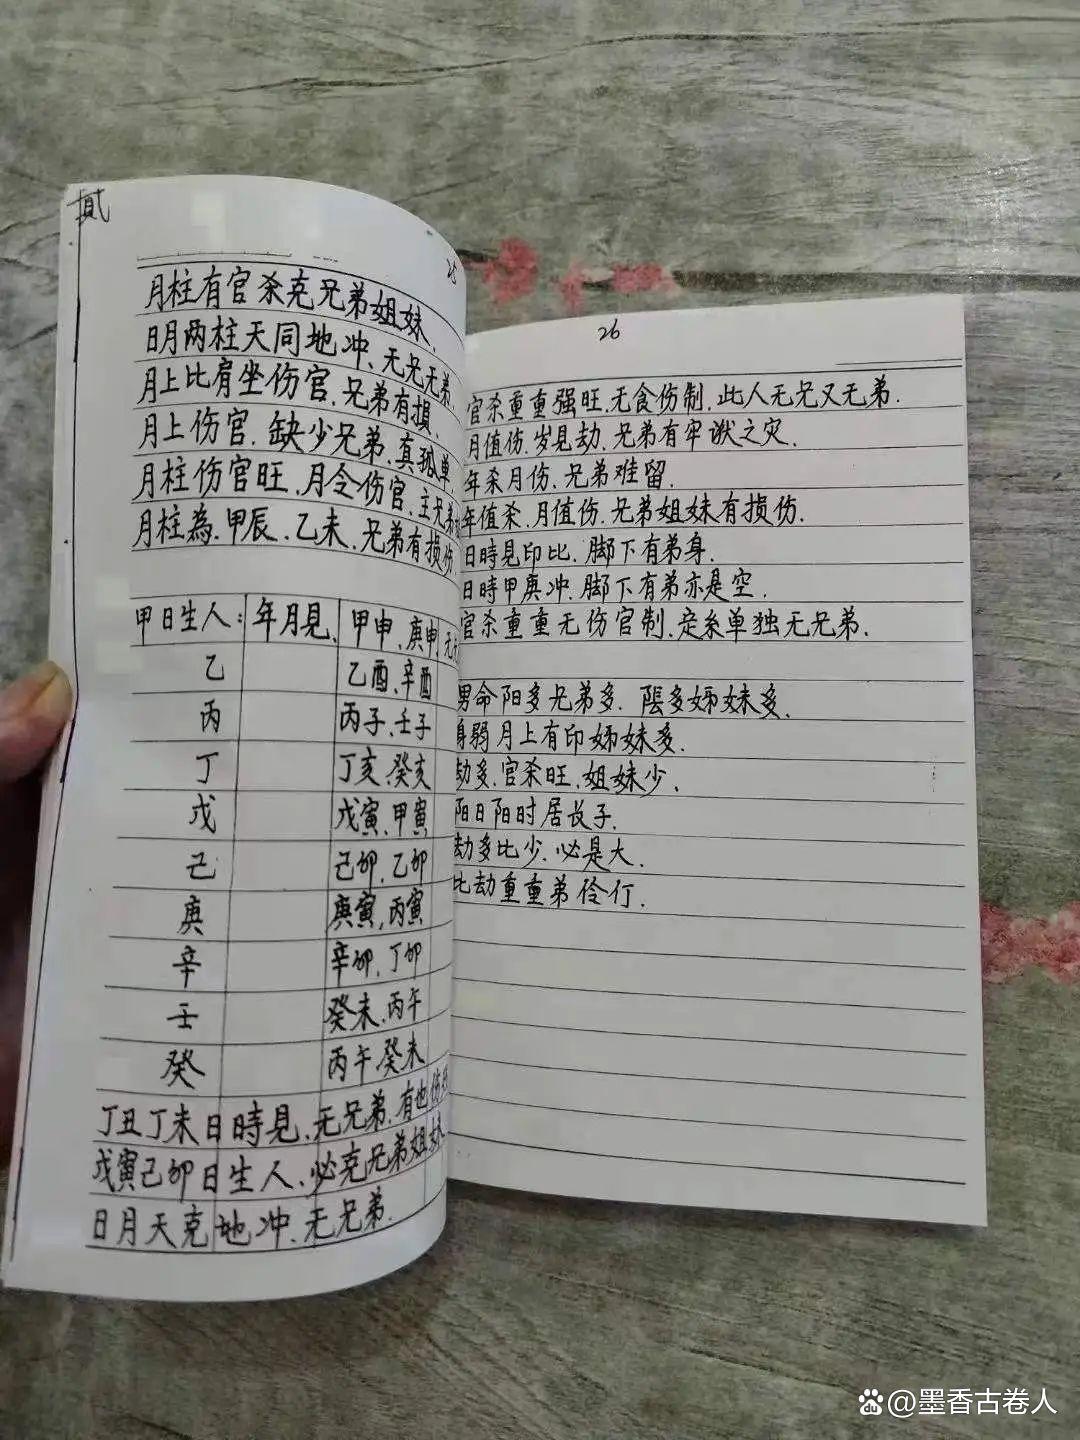 贰
25
月柱有官杀克兄弟姐妹.
日月两柱天同地冲、无兄无弟.
月上比肩坐伤官.兄弟有損.
月上伤官.缺少兄弟.真孤单.
月柱伤官旺、月令伤官.主兄弟
月柱為.甲辰.乙未.兄弟有损伤
甲日生人: 年月見、 甲申、庚申 无
乙 乙酉、辛酉
丙 丙子、壬子
丁 丁亥、癸亥
戊 戊寅、甲寅
己 己卯、乙卯
庚 庚寅,丙寅
辛 辛卯,丁卯
壬 癸未.丙午
癸 丙午.癸未
丁丑丁未日時見.无兄弟.有也伤
戊寅己卯日生人、必克兄弟姐妹
日月天克地冲、无兄弟.
26
官杀重重强旺.无食伤制.此人无兄又无弟.
月值伤.岁見劫、兄弟有牢狱之灾.
年杀月伤、兄弟难留.
年值杀、月值伤、兄弟姐妹有损伤.
日時見印比.脚下有弟身.
日時甲庚冲.脚下有弟亦是空.
官杀重重无伤官制.定系单独无兄弟.
男命阳多兄弟多.陰多姊妹多.
身弱月上有印姊妹多.
劫多.官杀旺.姐妹少.
阳日阳时居长子.
劫多比少.必是大.
比劫重重弟伶仃.
@墨香古卷人